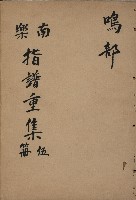 鳴部
南樂
指譜重集
伍冊